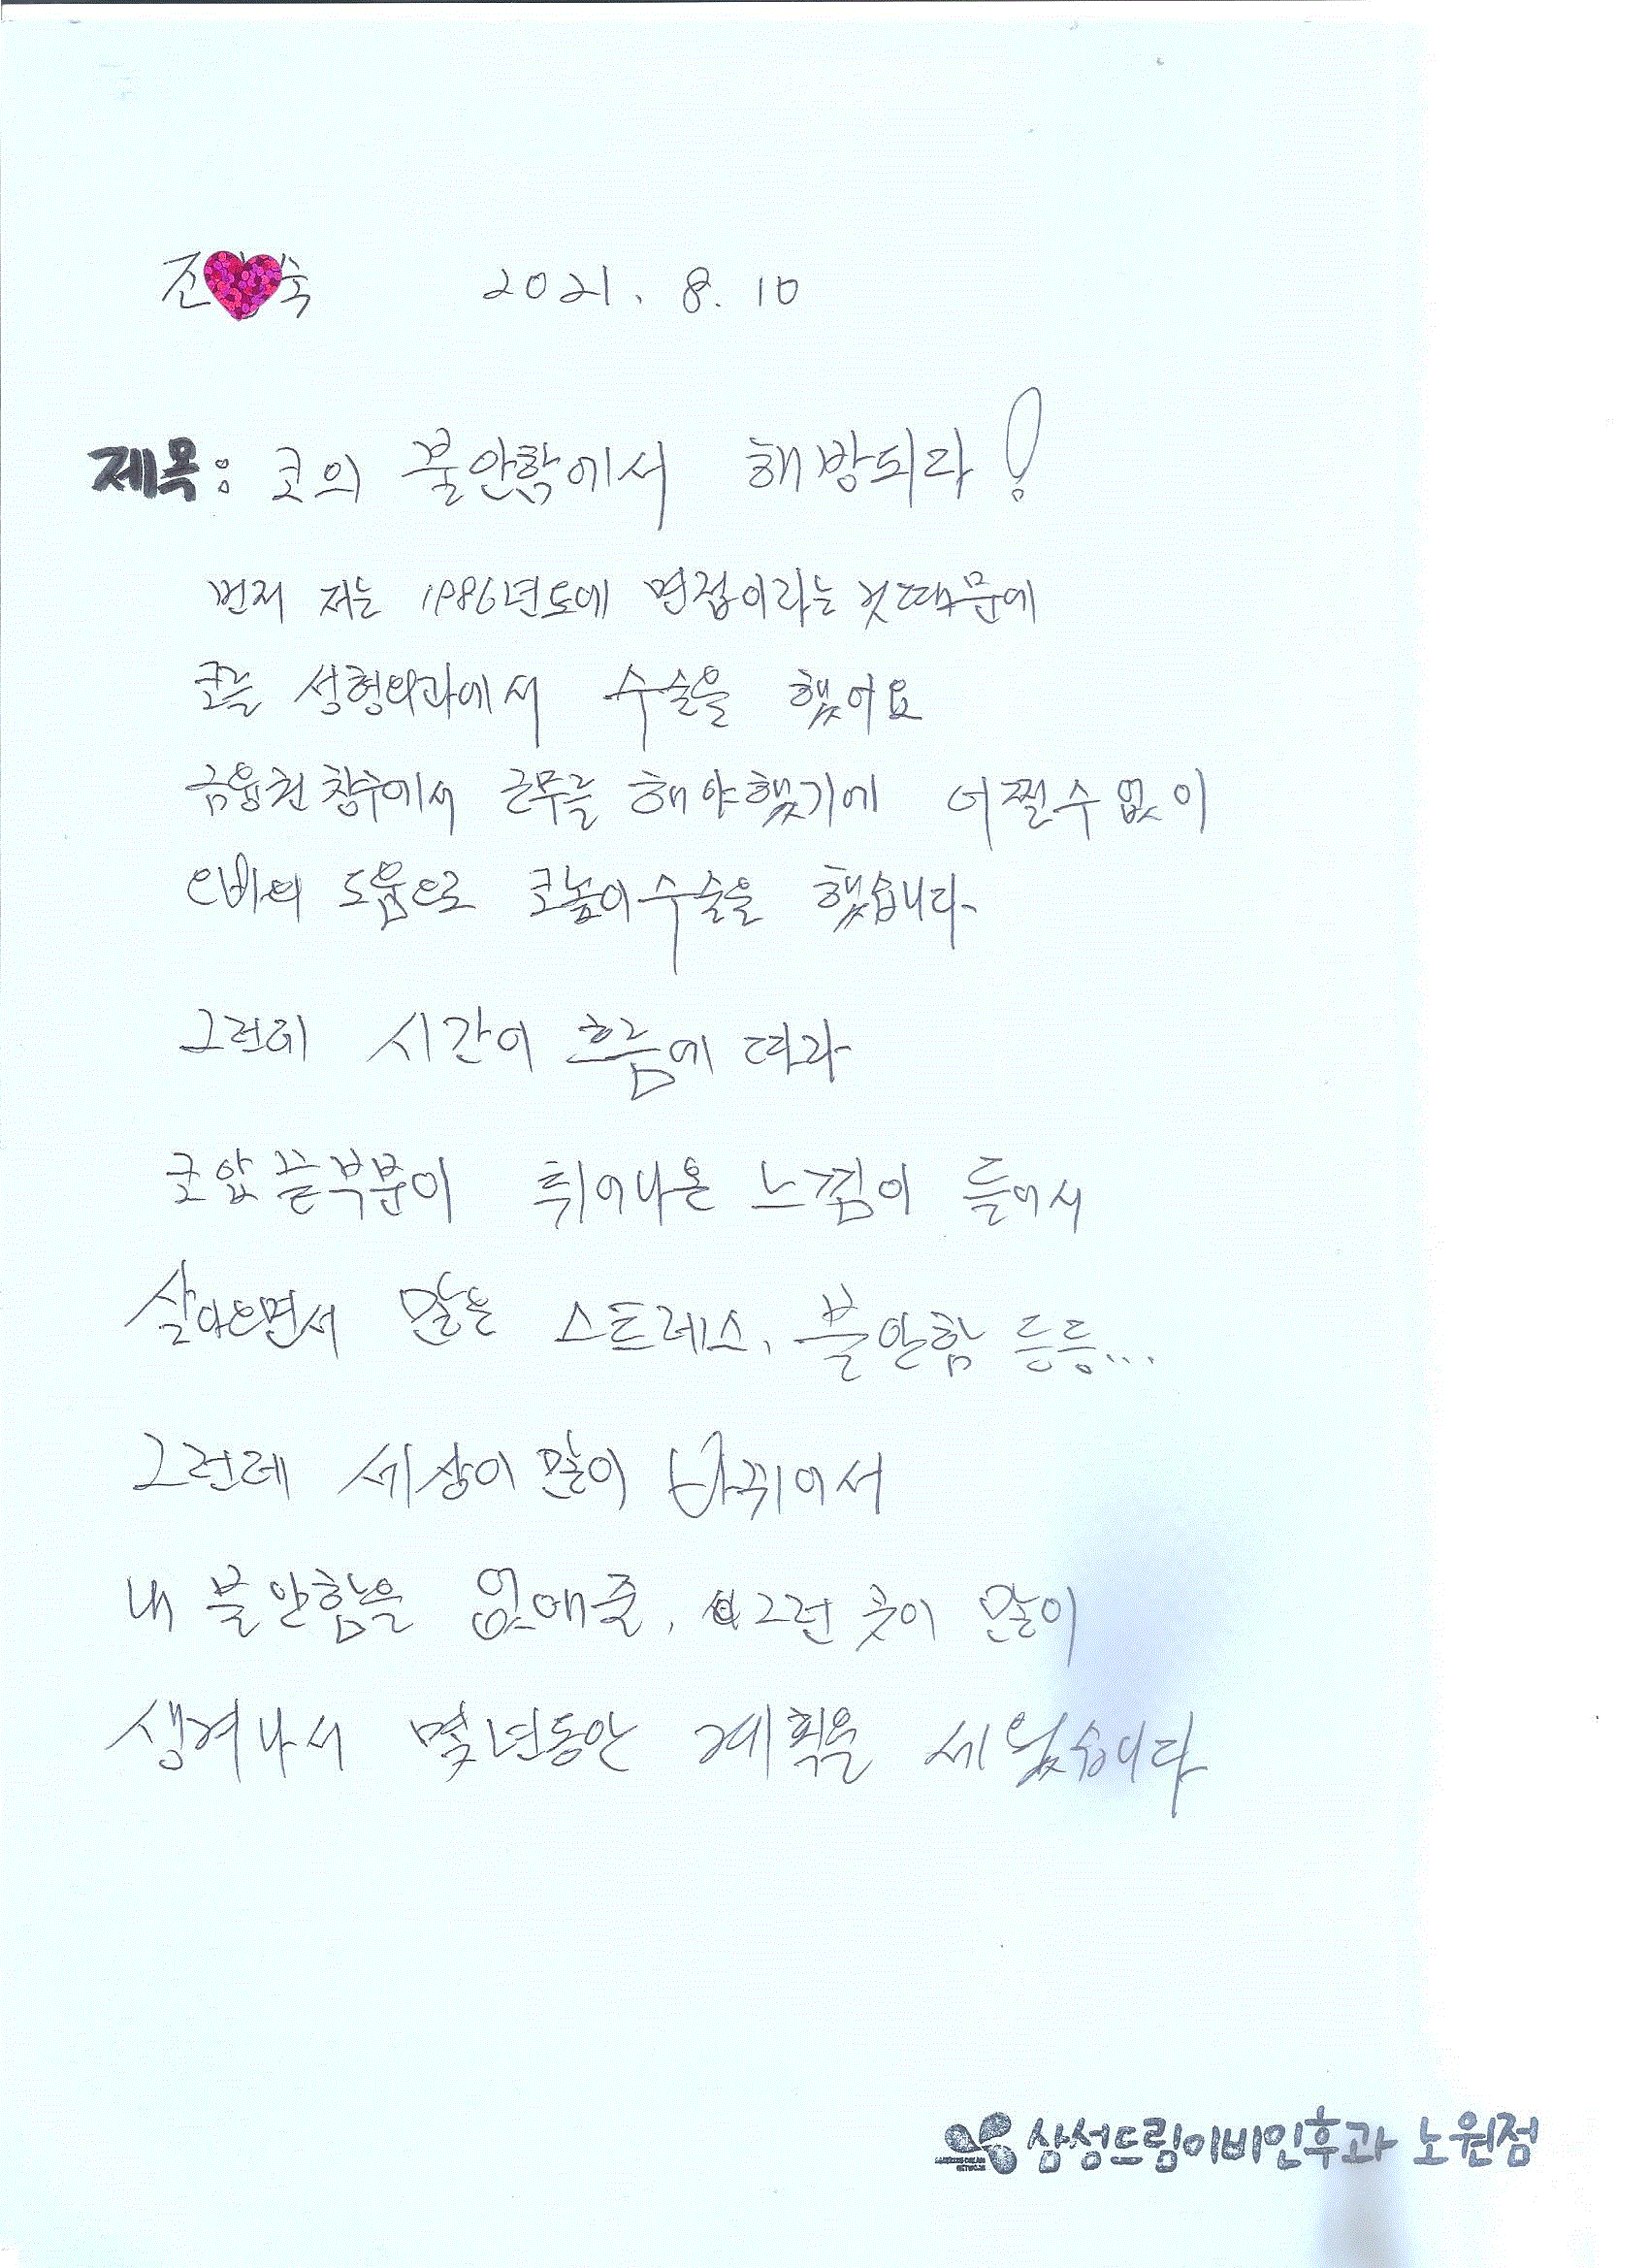 조 숙 2021. 8. 10
제목: 코의 불안함에서 해방되라!
먼저 저는 1986년도에 면접이라는 것때문에
코를 성형외과에서 수술을 했어요
금융권 창구에서 근무를 해야했기에 어쩔수없이
의 도움으로 코높이수술을 했습니다
그런데 시간이 흐름에 따라
코앞 끝부분이 튀어나온 느낌이 들어서
살아오면서 많은 스트레스, 불안함 등등...
그런데 세상이 많이 바뀌어서
내 불안함을 없애줄, 그런 곳이 많이
생겨나서 몇년동안 계획을 세웠습니다
삼성드림이비인후과 노원점